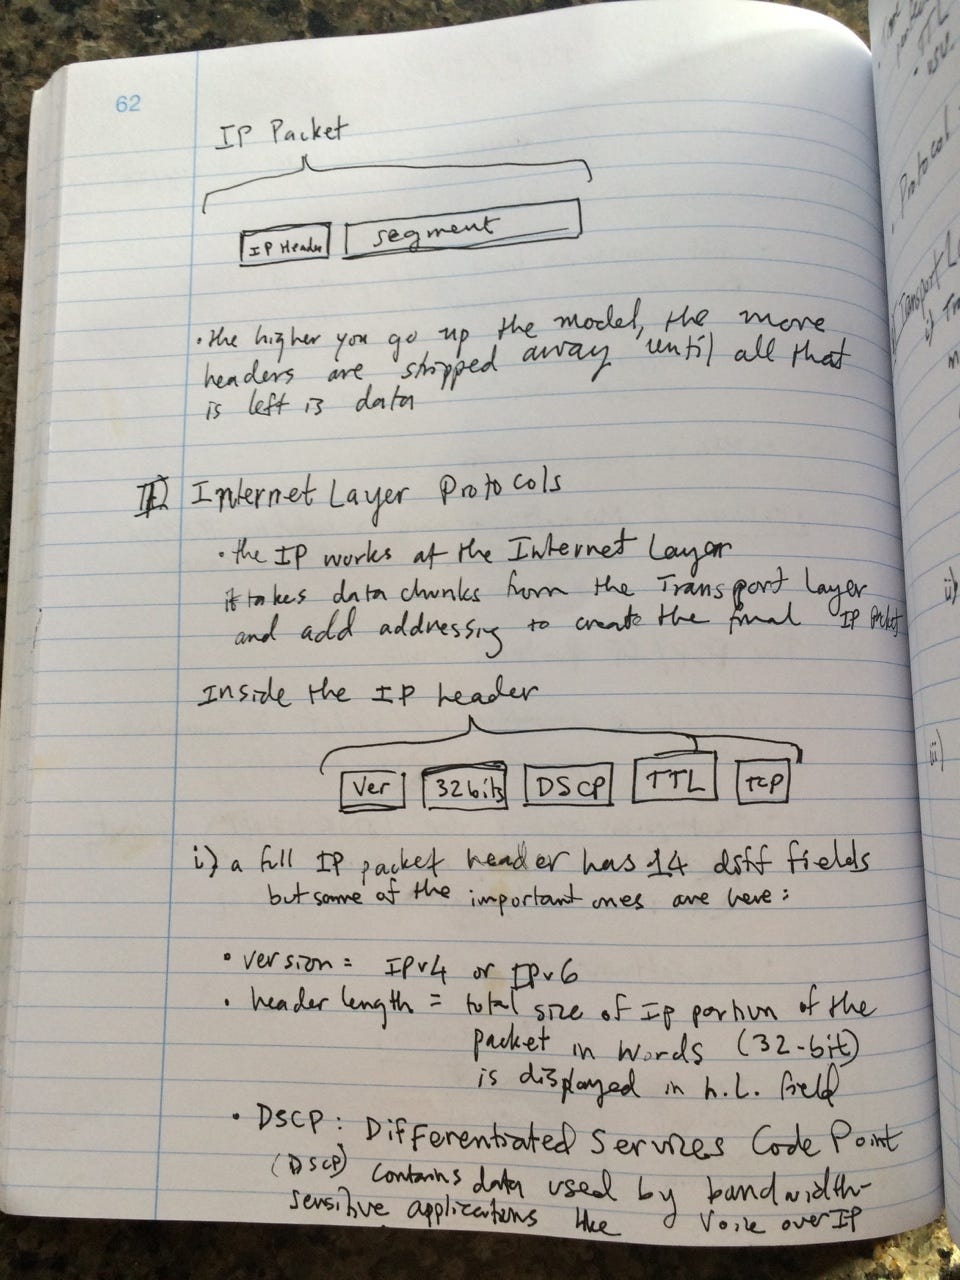 62
IP Packet
IP Header segment
• the higher you go up the model, the more
headers are stripped away until all that
is left is data
II) Internet Layer Protocols
• the IP works at the Internet Layer
it takes data chunks from the Transport Layer
and add addressing to create the final IP Packet
Inside the IP header
Ver 32 bits DSCP TTL TCP
i) a full IP packet header has 14 diff fields
but some of the important ones are here:
• version = IPv4 or IPv6
• header length = total size of IP portion of the
packet in words (32-bit)
is displayed in h.L. field
• DSCP: Differentiated Services Code Point
(DSCP) contains data used by bandwidth-
sensitive applications like Voice over IP
TTL
• Protocol
Transport La
i) Tra
ii)
iii)